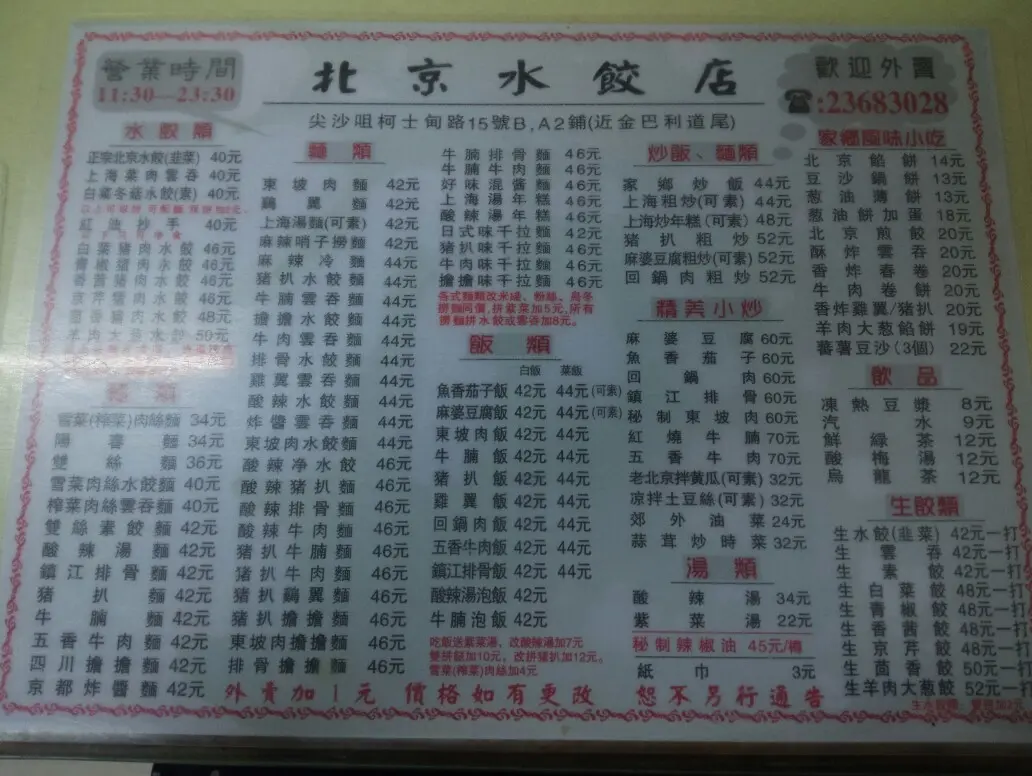 營業時間
11:30—23:30
北京水餃店
歡迎外賣
☎:23683028
尖沙咀柯士甸路15號B,A2鋪(近金巴利道尾)
水餃類
正宗北京水餃(韮菜) 40元
上海菜肉雲吞 40元
白菜冬菇水餃(素) 40元
紅油抄手 40元
白菜豬肉水餃 46元
青椒豬肉水餃 46元
香茜豬肉水餃 46元
京芹豬肉水餃 46元
茴香豬肉水餃 48元
羊肉大葱水餃 50元
麵類
雪菜(榨菜)肉絲麵 34元
陽春麵 34元
雙絲麵 36元
雪菜肉絲水餃麵 40元
榨菜肉絲雲吞麵 40元
雙絲素餃麵 42元
酸辣湯麵 42元
鎮江排骨麵 42元
豬扒麵 42元
牛腩麵 42元
五香牛肉麵 42元
四川擔擔麵 42元
京都炸醬麵 42元
麵類
東坡肉麵 42元
鷄翼麵 42元
上海湯麵(可素) 42元
麻辣哨子撈麵 42元
麻辣冷麵 44元
豬扒水餃麵 44元
牛腩雲吞麵 44元
擔擔水餃麵 44元
牛肉雲吞麵 44元
排骨水餃麵 44元
雞翼雲吞麵 44元
酸辣水餃麵 44元
炸醬雲吞麵 44元
東坡肉水餃麵 44元
酸辣净水餃 46元
酸辣豬扒麵 46元
酸辣排骨麵 46元
酸辣牛肉麵 46元
豬扒牛腩麵 46元
豬扒牛肉麵 46元
豬扒鷄翼麵 46元
豬扒擔擔麵 46元
東坡肉擔擔麵 46元
排骨擔擔麵 46元
牛腩排骨麵 46元
牛腩牛肉麵 46元
好味混醬麵 46元
上海湯年糕 46元
酸辣湯年糕 46元
日式味千拉麵 46元
豬扒味千拉麵 46元
牛肉味千拉麵 46元
擔擔味千拉麵 46元
各式麵類改米綫、粉絲、烏冬
撈麵同價,拼紫菜加5元,所有
撈麵拼水餃或雲吞加8元。
飯類
白飯 菜飯
魚香茄子飯 42元 44元(可素)
麻婆豆腐飯 42元 44元(可素)
東坡肉飯 42元 44元
牛腩飯 42元 44元
豬扒飯 42元 44元
雞翼飯 42元 44元
回鍋肉飯 42元 44元
五香牛肉飯 42元 44元
鎮江排骨飯 42元 44元
酸辣湯泡飯 42元
牛腩泡飯 42元
吃飯送紫菜湯、改酸辣湯加7元
雙拼餸加10元。改拼豬扒加12元。
雪菜(榨菜)肉絲加4元
炒飯、麵類
家鄉炒飯 44元
上海粗炒(可素) 44元
上海炒年糕(可素) 48元
豬扒粗炒 52元
麻婆豆腐粗炒(可素) 52元
回鍋肉粗炒 52元
精美小炒
麻婆豆腐 60元
魚香茄子 60元
回鍋肉 60元
鎮江排骨 60元
秘制東坡肉 60元
紅燒牛腩 70元
五香牛肉 70元
老北京拌黄瓜(可素) 32元
凉拌土豆絲(可素) 32元
郊外油菜 24元
蒜茸炒時菜 32元
湯類
酸辣湯 34元
紫菜湯 22元
秘制辣椒油 45元/樽
紙巾 3元
家鄉風味小吃
北京餡餅 14元
豆沙鍋餅 13元
葱油薄餅 13元
葱油餅加蛋 18元
北京煎餃 20元
酥炸雲吞 20元
香炸春卷 20元
牛肉卷餅 20元
香炸雞翼/豬扒 20元
羊肉大葱餡餅 19元
蕃薯豆沙(3個) 22元
飲品
凍熱豆漿 8元
汽水 9元
鮮綠茶 12元
酸梅湯 12元
烏龍茶 12元
生餃類
生水餃(韮菜) 42元一打
生雲吞 42元一打
生素餃 42元一打
生白菜餃 48元一打
生青椒餃 48元一打
生香茜餃 48元一打
生京芹餃 48元一打
生茴香餃 50元一打
生羊肉大葱餃 52元一打
外賣加1元 價格如有更改 恕不另行通告